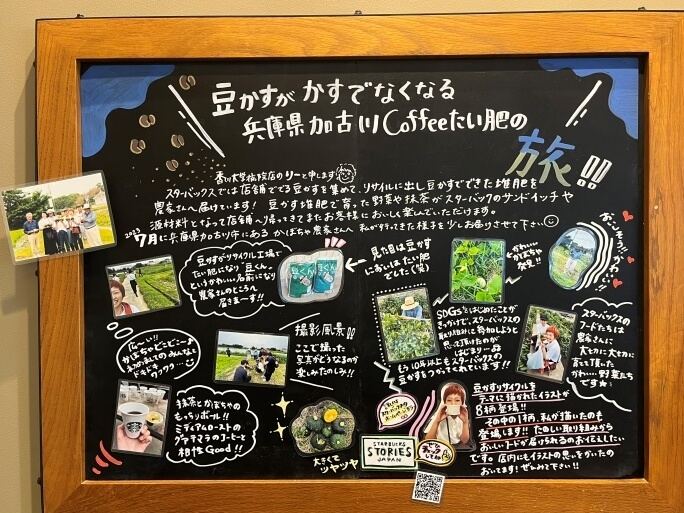 豆かすが かすでなくなる
兵庫県 加古川 Coffeeたい肥の
旅!!
スターバックスでは店舗ででる豆かすを集めて、リサイクルに出し豆かすでできた堆肥を
農家さんへ届けています! 豆かす堆肥で育った野菜や抹茶がスターバックのサンドイッチや
源材料となって店舗へ帰ってきてまたお客様においしく楽しんでいただけます。
2023
7月に兵庫県加古川市にある かぼちゃ農家さんへ 私が行ってきた様子を少しお届けさせて下さい
豆かすがリサイクル工場で
たい肥になり「豆くん」
というかわいい名前になり
農家さんのところへ
届きまーす!!
豆くん
豆くん
見た目は豆かす
においはたい肥
でした(笑)
かわいい
かぼちゃ
発見!!
おいしそう!かわいい!
広〜い!!
かぼちゃどこどこ〜♪
初めましてのみんなと
ドキドキワクワク…
撮影風景!!
ここで撮った
写真がどうなるのか
楽しみだのしみ!!
SDGsをはじめたことが
きっかけで、スターバックスの
取り組みに参加しようと
思って頂けたのが
はじまり…
もう10年以上もスターバックスの
豆かすをつかってくれています!!
スターバックスの
フードたちは
農家さんに
大切に大切に
育てて頂いた
かわいい野菜たち
です☆
抹茶とかぼちゃの
もっちりボール!
ミディアムローストの
グァテマラのコーヒーと
相性Good!!
大きくて
ツヤツヤ
STARBUCKS
STORIES
JAPAN
チェック
してね
豆かすリサイクルを
テーマに描かれたイラストが
8柄登場!!
その中の1柄、私が描いたのも
登場します!! たのしい取り組みから
おいしいフードが届けられるのお伝えしたい
です。店内にもイラストの思いをかいたの
おいてます! ぜひみて下さい!!